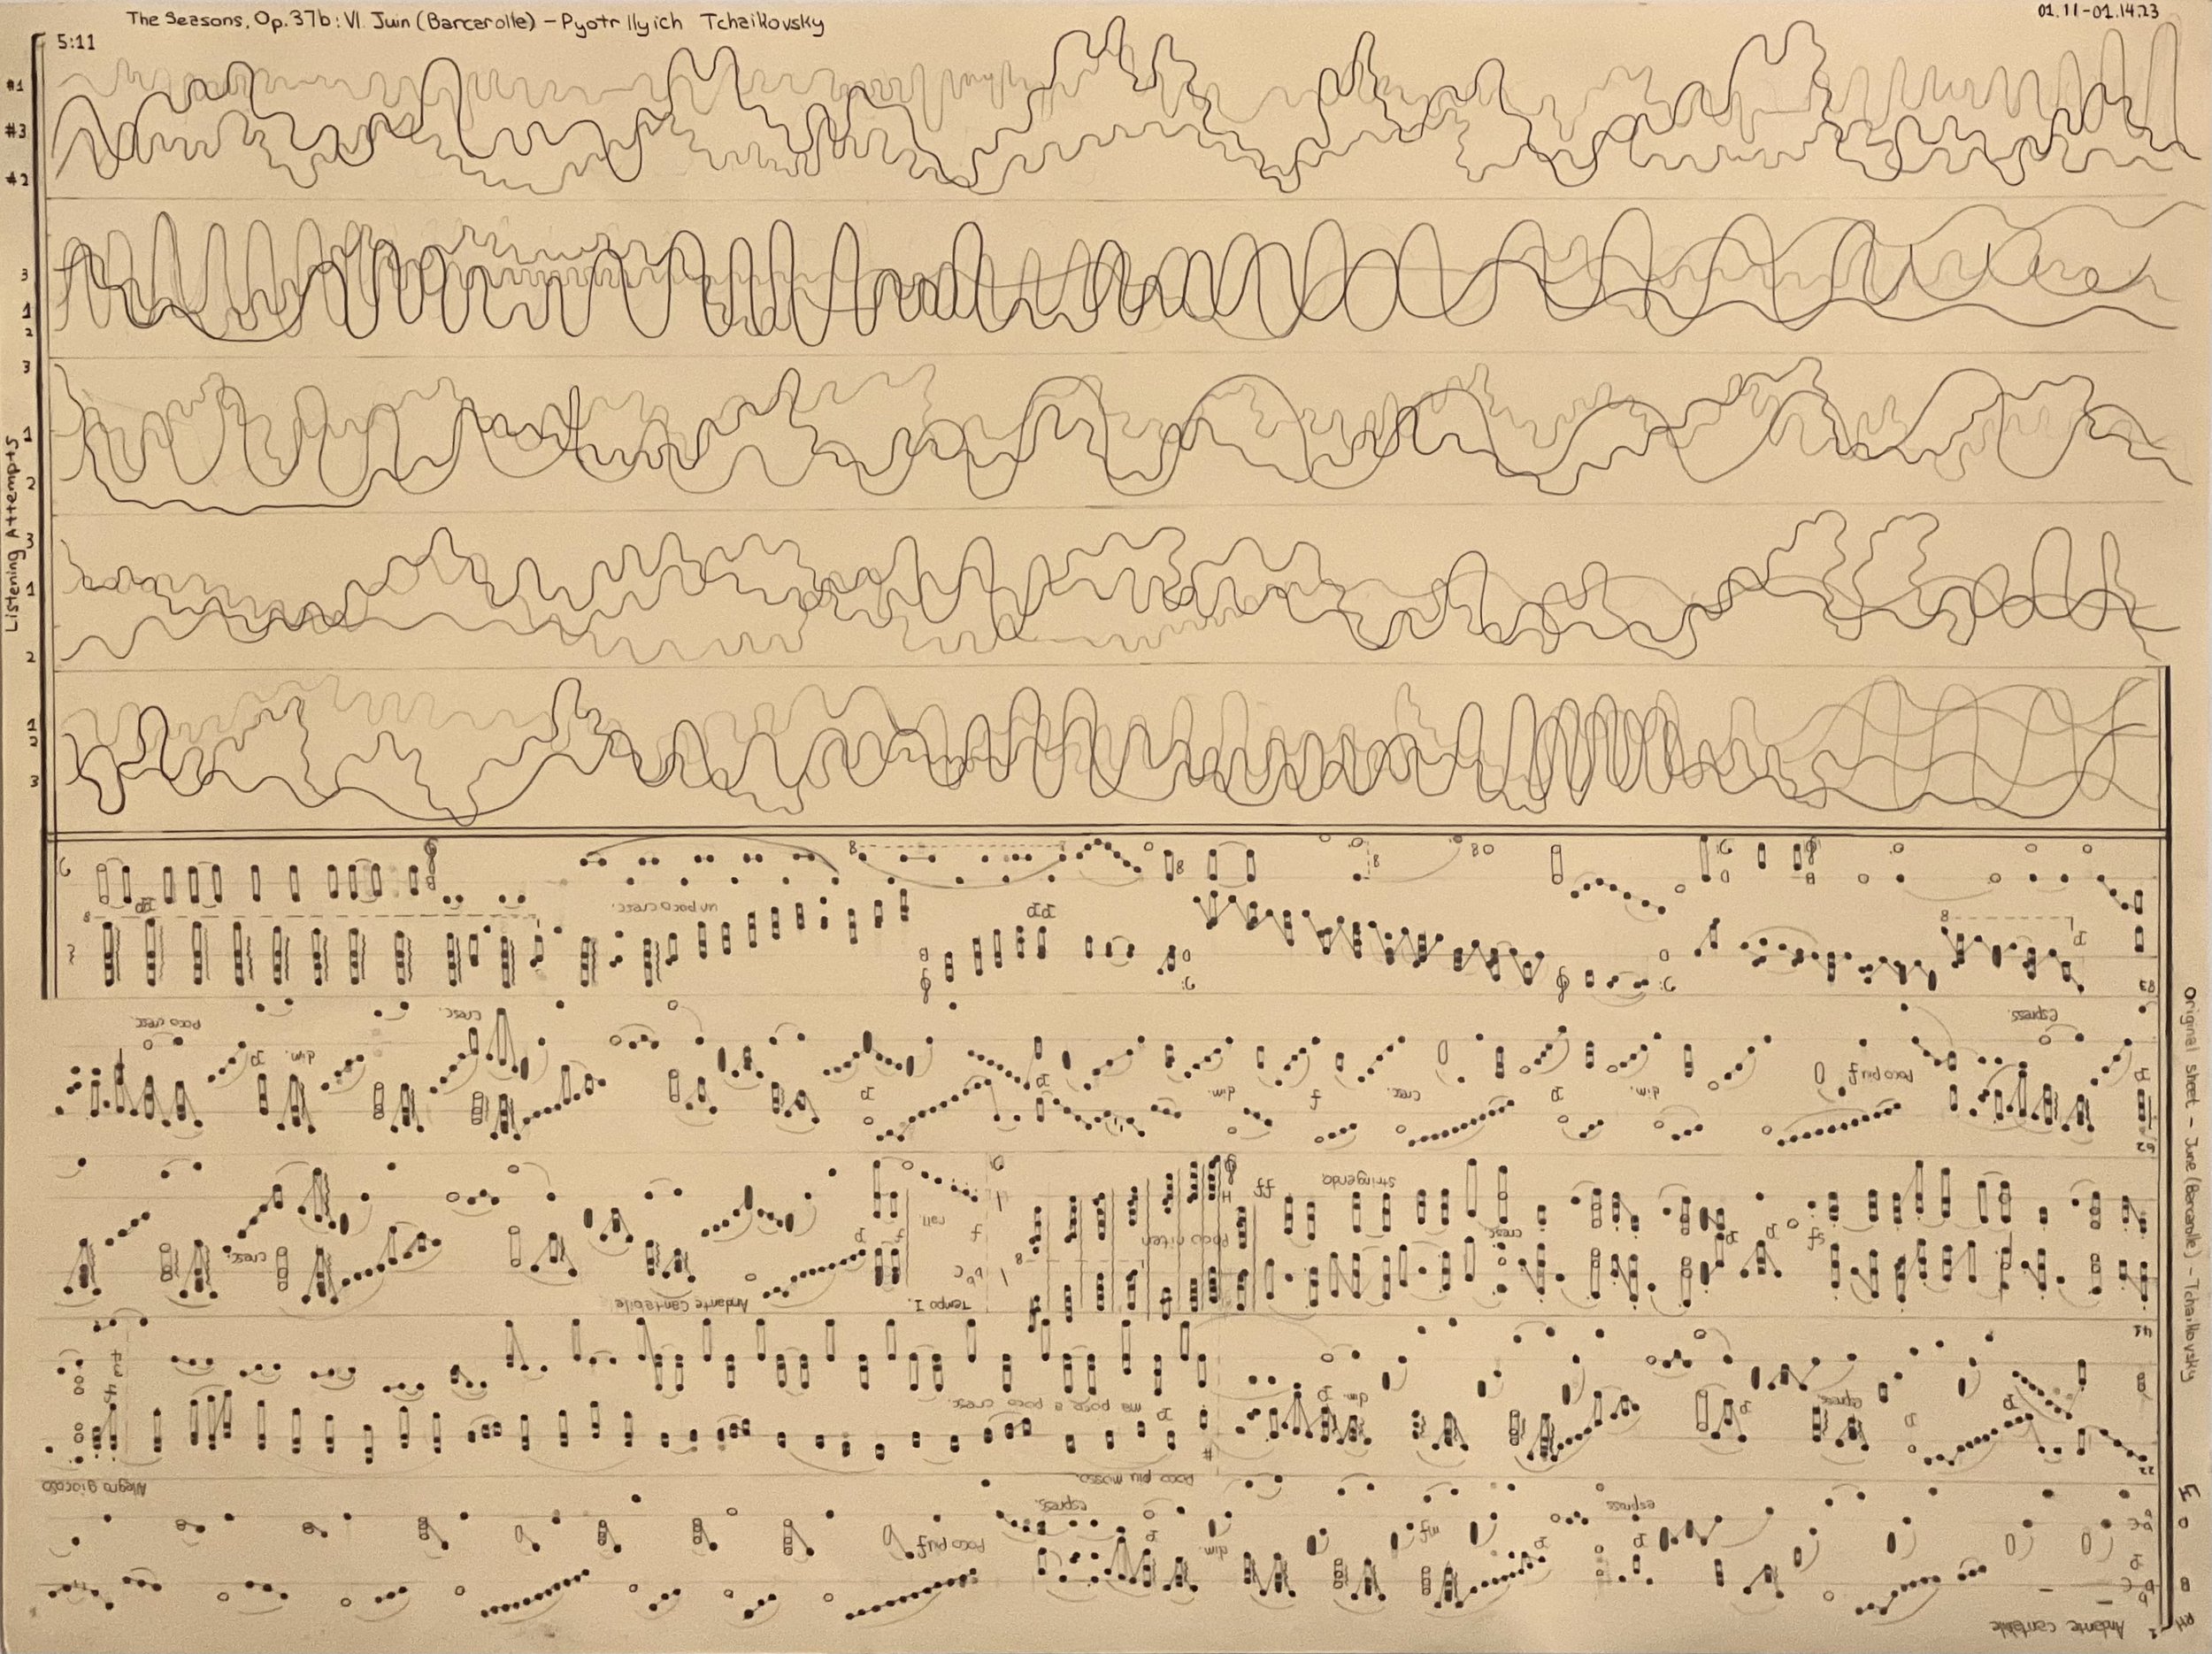 The Seasons, Op.37b: VI. Juin (Barcarolle) – Pyotr Ilyich Tchaikovsky
01.11-01.14.23
5:11
#1
#3
#2
3
1
2
3
1
2
3
1
2
1
2
3
Listening Attempts
Original sheet - June (Barcarolle) - Tchaikovsky
Andante cantabile
RH
p
espress.
mf
dim.
p
espress.
Poco più f
Poco più mosso.
22
p
espress.
p
dim.
p
ma poco a poco cresc.
Allegro giocoso
3
4
f
fs
p
cresc.
stringendo
ff
Poco riten
8
f
rall.
Tempo I.
Andante Cantabile
f
p
cresc.
62
p
espress.
Poco più f
dim.
p
cresc.
f
dim.
p
p
cresc.
dim.
p
poco cresc.
83
p
8
pp
un poco cresc.
8
8
8
8
pp
8